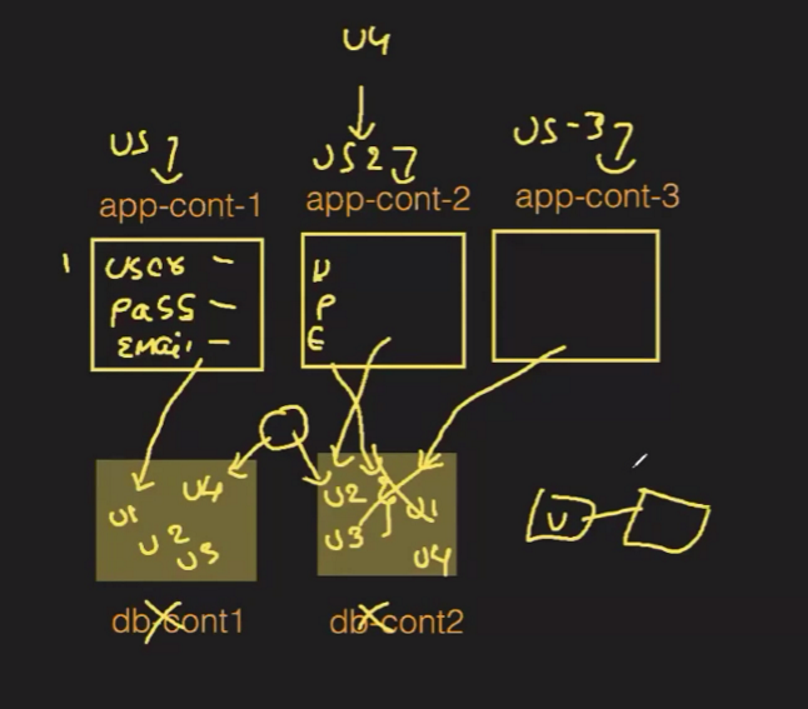 U4
US1
US2
US-3
app-cont-1
app-cont-2
app-cont-3
1
user -
pass -
Email -
U
P
E
U1
U4
U2
U3
U2
U1
U3
U4
U
db-cont1
db-cont2